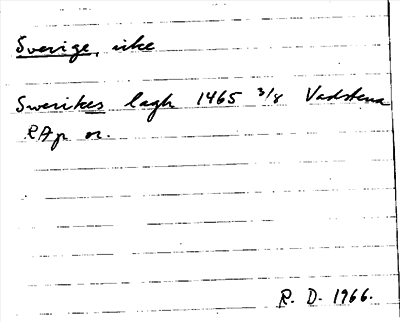 Sverige, rike
Swerikes lagh 1465 3/8 Vadstena
RAp or.
R. D. 1966.